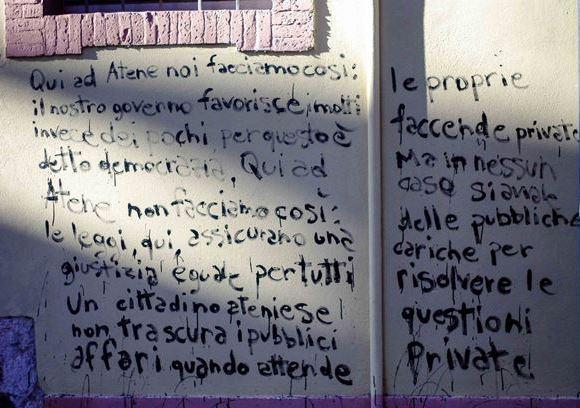 Qui ad Atene noi facciamo così:
il nostro governo favorisce i molti
invece dei pochi per questo è
detto democrazia. Qui ad
Atene non facciamo così:
le leggi, qui, assicurano una
giustizia eguale per tutti
Un cittadino ateniese
non trascura i pubblici
affari quando attende
le proprie
faccende private
Ma in nessun
caso si avvale
delle pubbliche
cariche per
risolvere le
questioni
Private